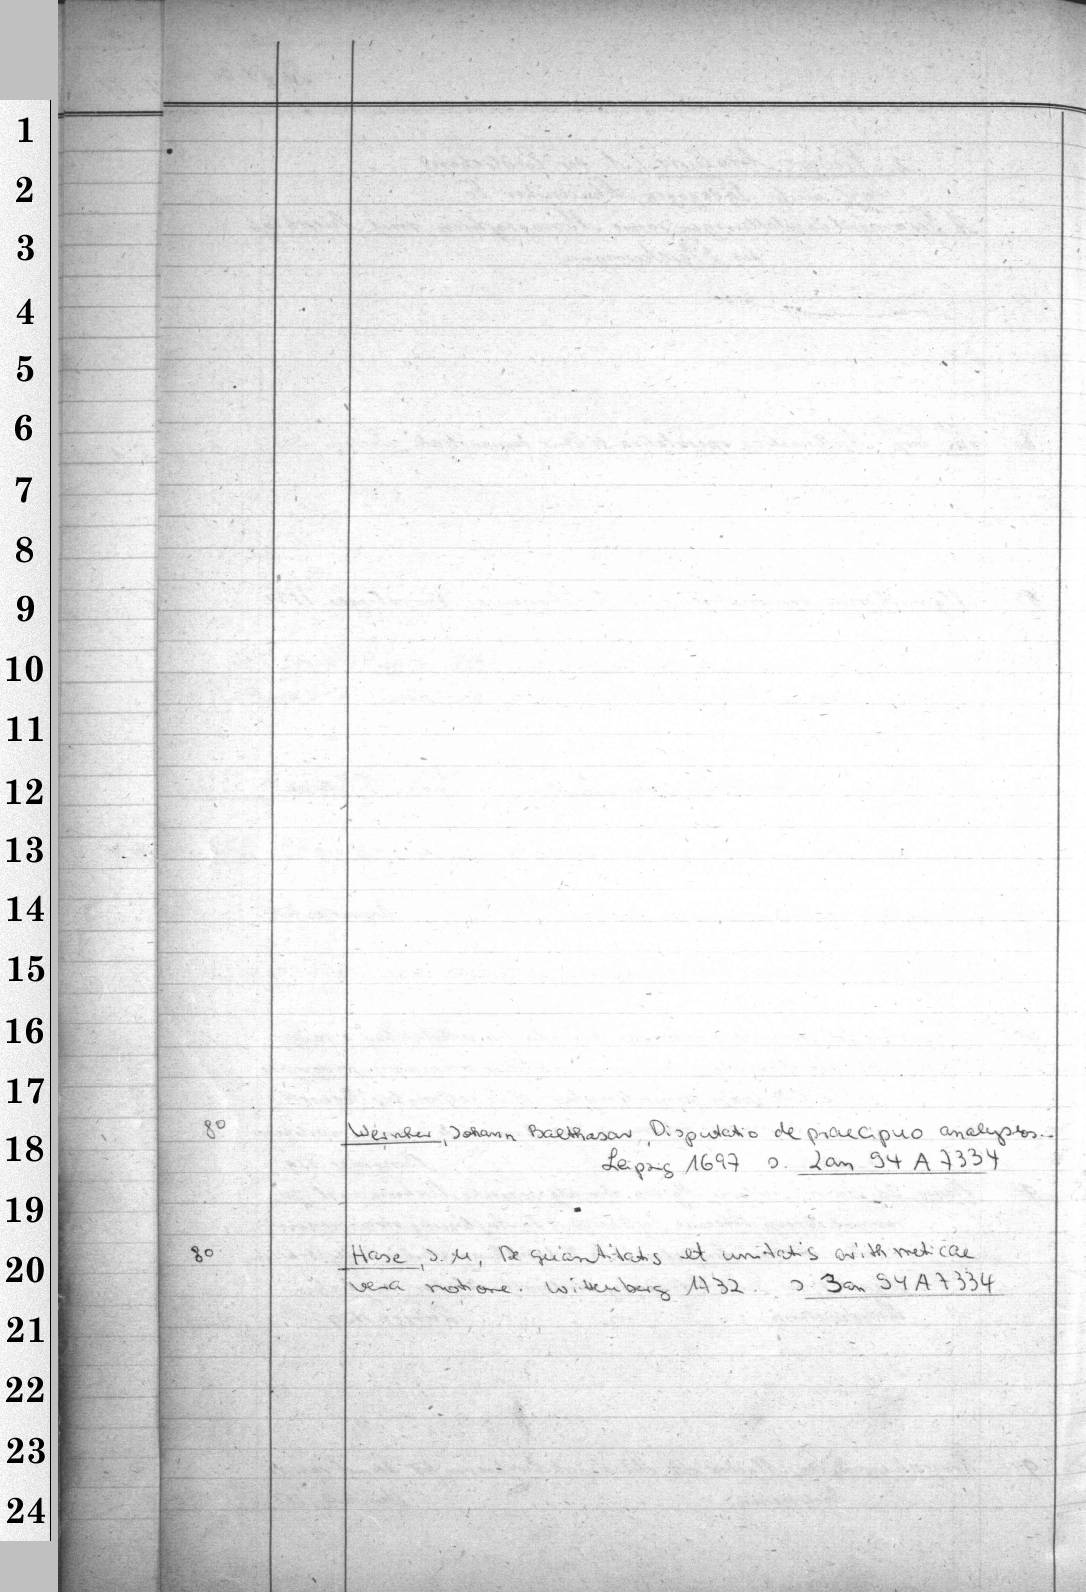 1
2
3
4
5
6
7
8
9
10
11
12
13
14
15
16
17
18
19
20
21
22
23
24
8° Wernher, Johann Balthasar, Disputatio de praecipuo analyseos..
Leipzig 1697 s. 2an 94 A 7334
8° Hase, J. M., De quantitatis et unitatis arithmeticae
vera notione. Wittenberg 1732. s 3an 94 A 7334